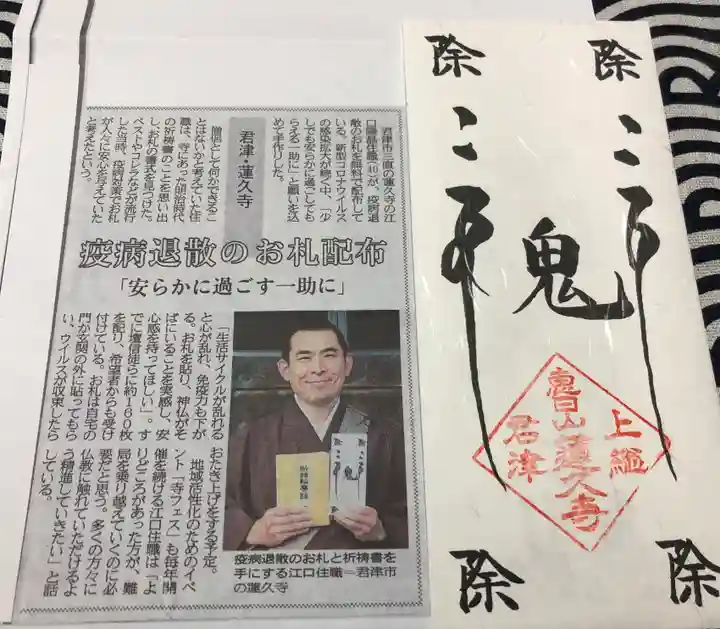 君津市三直の蓮久寺の江
口陽晶住職(41)が、疫病退
散のお札を無料で配布して
いる。新型コロナウイルス
の感染拡大が続く中、「少
しでも安らかに過ごしても
らえる一助に」と願いを込
めて手作りした。
君津・蓮久寺
僧侶として何かできるこ
とはないかと考えていた住
職は、寺にあった明治時代
の祈祷書のことを思い出
し、お札の書式を見つけた。
ペストやコレラなどが流行
した当時、疫病対策でお札
が人々に安心を与えていた
と考えたという。
疫病退散のお札配布
「安らかに過ごす一助に」
「生活サイクルが乱れる
と心が乱れ、免疫力も下が
る。お札を貼り、神仏がそ
ばにいることを実感し、安
心感を持ってほしい」。す
でに檀信徒らに約160枚
を配り、希望者からも受け
付けている。お札は自宅の
門か玄関の外に貼ってもら
い、ウイルスが収束したら
おたき上げをする予定。
地域活性化のためのイベ
ント「寺フェス」も毎年開
催を続ける江口住職は「よ
りどころがあった方が、難
局を乗り越えていくのに必
要だと思う。多くの方々に
仏教に触れていただけるよ
う精進していきたい」と話
している。
疫病退散のお札と祈祷書を
手にする江口住職＝君津市
の蓮久寺
除
除
鬼
上総
恵日山蓮久寺
君津
除
除